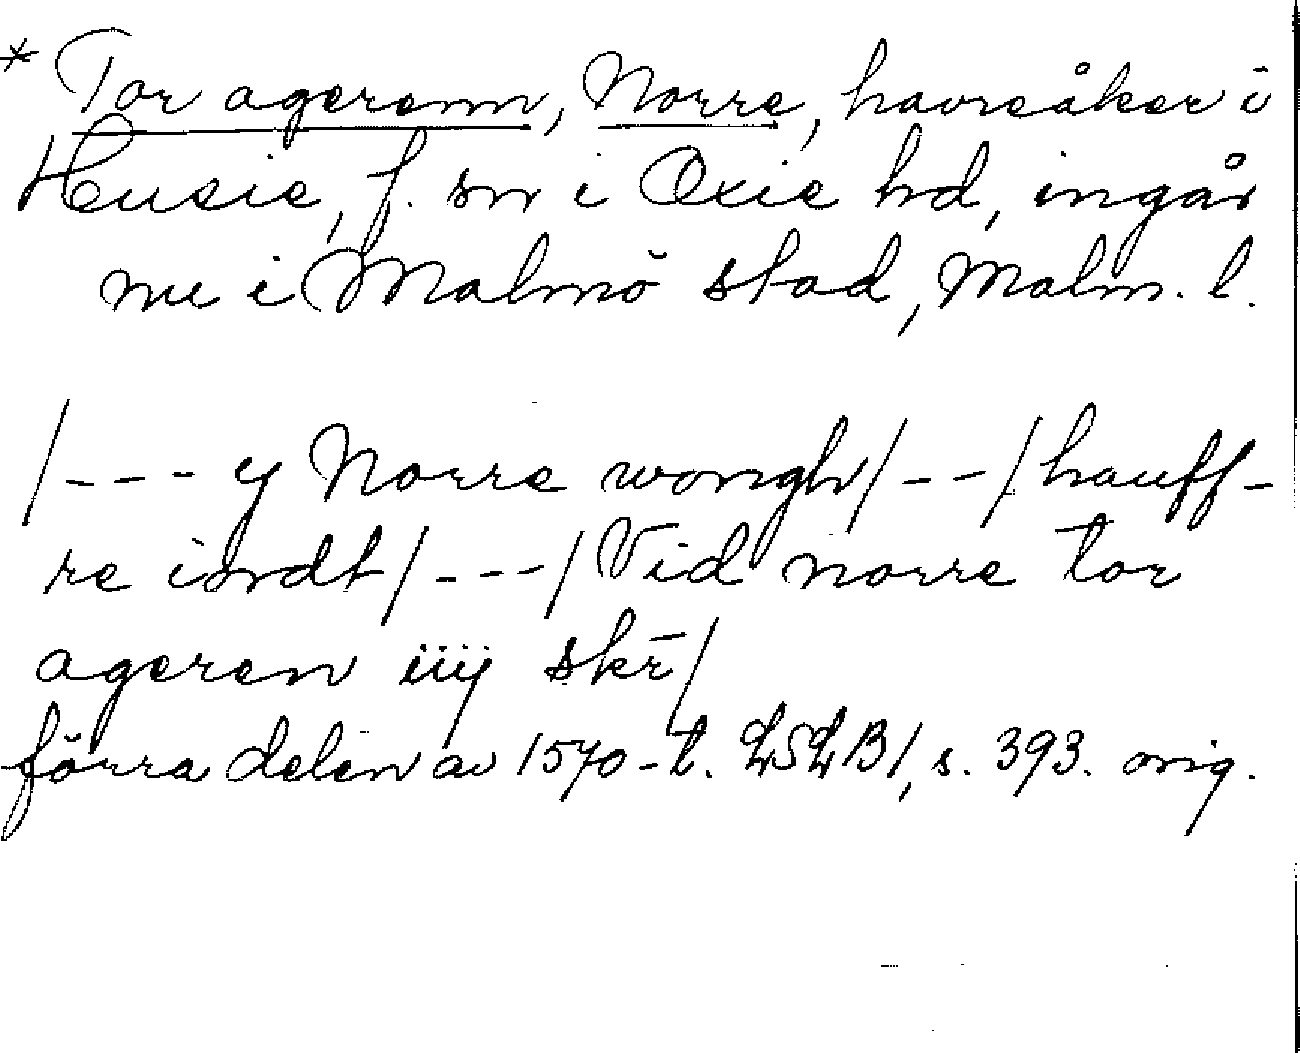 * Tor agerenn, Norre, havreåker i
Husie, f. sn i Oxie hd, ingår
nu i Malmö stad, Malm. l.
/--- y Norre wongh/--/hauff-
re iordt/---/Vid norre tor
ageren iiij skr̄/
förra delen av 1570-t. LSLB1, s. 393. orig.